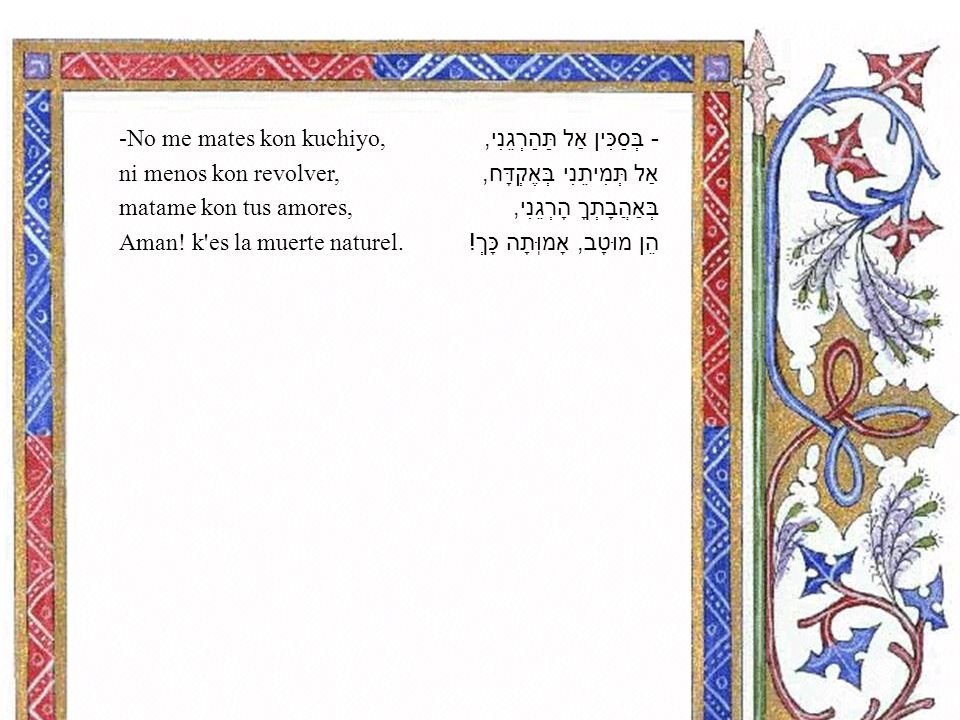 -No me mates kon kuchiyo,
ni menos kon revolver,
matame kon tus amores,
Aman! k'es la muerte naturel.
- בְּסַכִּין אַל תַּהַרְגֵנִי,
אַל תְּמִיתֵנִי בְּאֶקְדָּח,
בְּאַהֲבָתְךָ הָרְגֵנִי,
הֵן מוּטָב, אָמוּתָה כָּךְ!